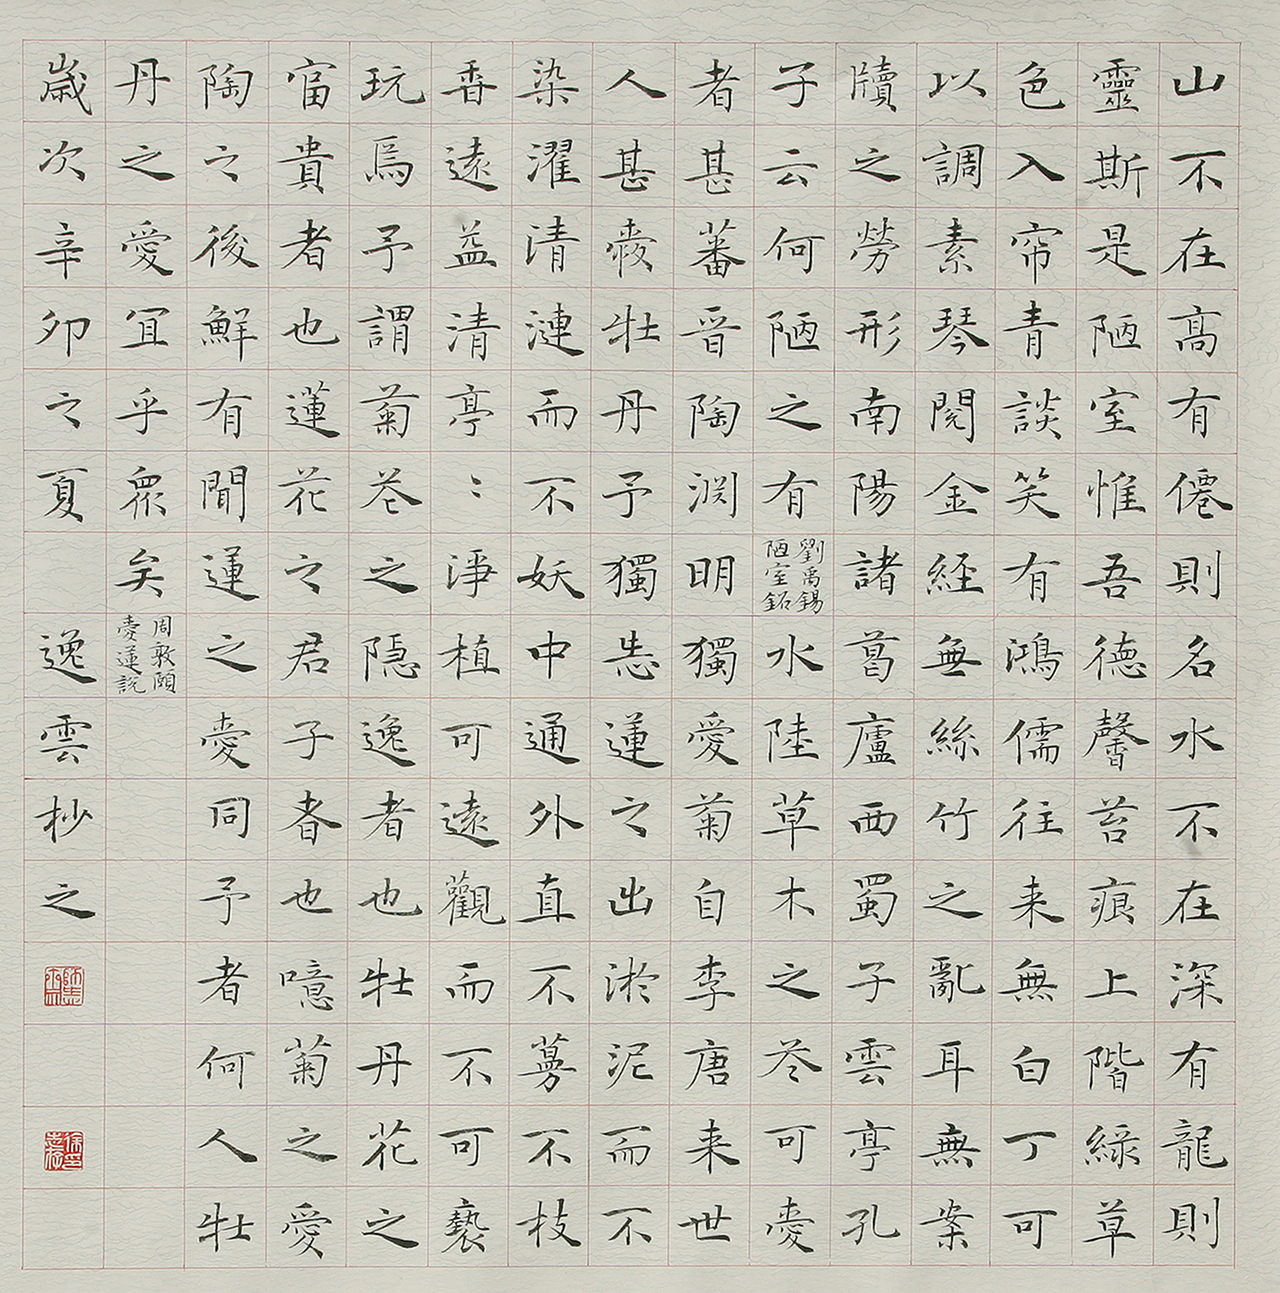 山不在高有僊則名水不在深有龍則
靈斯是陋室惟吾德馨苔痕上階緑草
色入帘青談笑有鴻儒往来無白丁可
以調素琴閱金經無絲竹之亂耳無案
牘之勞形南陽諸葛廬西蜀子雲亭孔
子云何陋之有
劉禹錫
陋室銘
水陸草木之花可愛
者甚蕃晉陶渊明獨愛菊自李唐来世
人甚愛牡丹予獨愛蓮之出淤泥而不
染濯清漣而不妖中通外直不蔓不枝
香遠益清亭:淨植可遠觀而不可褻
玩焉予謂菊花之隐逸者也牡丹花之
富貴者也蓮花之君子者也噫菊之愛
陶之後鮮有聞蓮之愛同予者何人牡
丹之愛宜乎眾矣
周敦頤
愛蓮說
歲次辛卯之夏 逸雲抄之